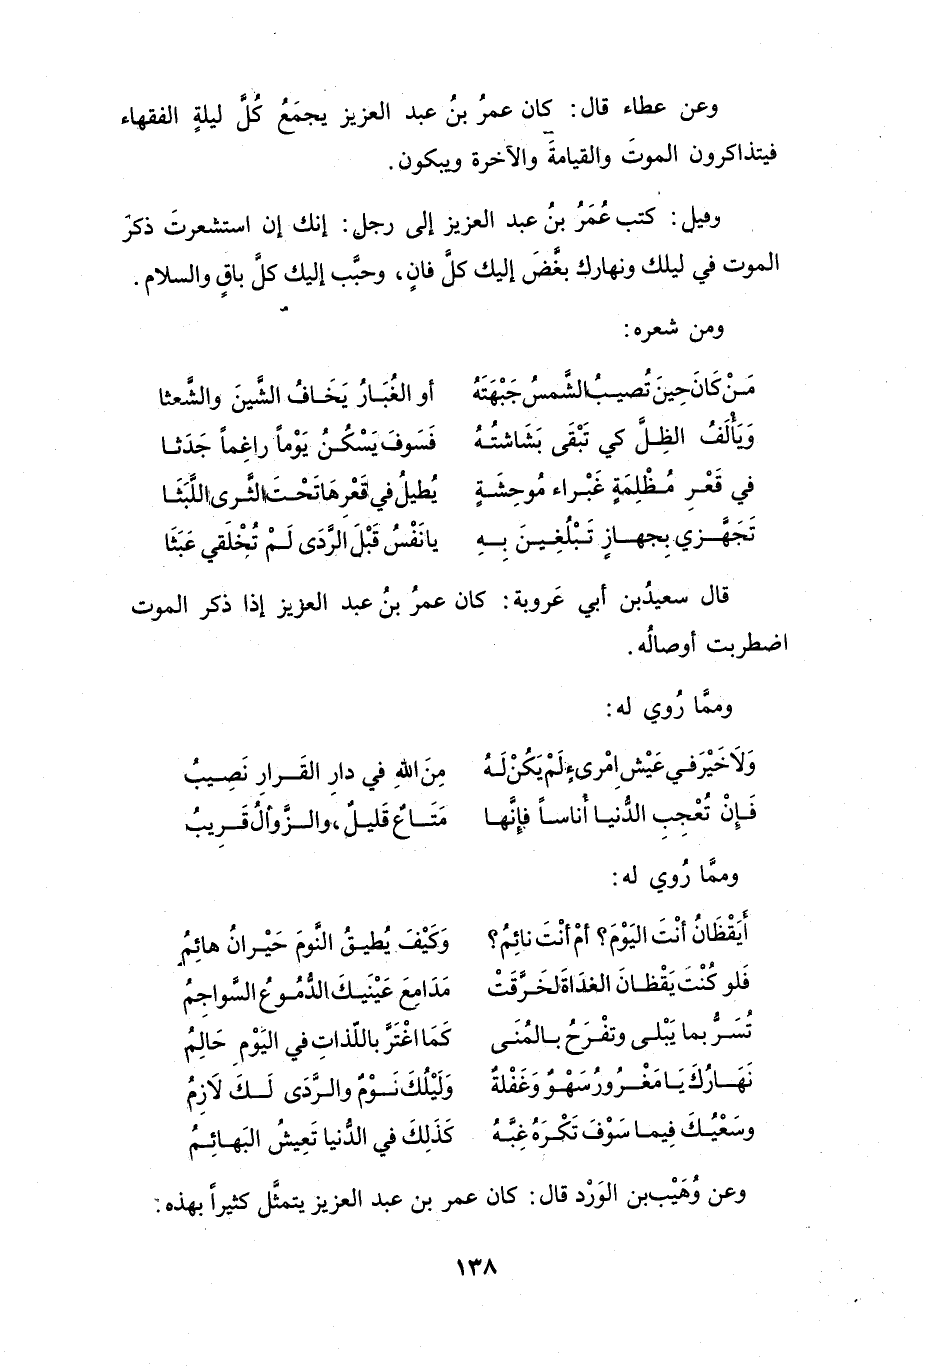 وعن عطاء قال: كان عمرُ بنُ عبد العزيز يجمَعُ كُلَّ ليلةٍ الفقهاء
فيتذاكرون الموتَ والقيامةَ والآخرة ويبكون.
وقيل: كتب عُمَرُ بنُ عبد العزيز إلى رجل: إنك إن استشعرتَ ذكرَ
الموت في ليلك ونهارك بغَّضَ إليك كلَّ فانٍ، وحبَّب إليك كلَّ باقٍ والسلام.
ومن شعره:
مَنْ كَانَ حِينَ تُصيبُ الشَّمسُ جَبْهَتَهُ أو الغُبَارُ يَخَافُ الشَّينَ والشَّعثا
وَيَأْلَفُ الظِلَّ كي تَبْقَى بَشَاشتُهُ فَسَوفَ يَسْكُنُ يَوْماً راغِماً جَدَثا
في قَعْرِ مُظْلِمَةٍ غَبْراء مُوحِشَةٍ يُطيلُ في قَعْرِهَا تَحْتَ الثَّرى اللَّبَثَا
تَجَهَّزي بِجهازٍ تَبْلُغِينَ بِهِ يا نَفْسُ قَبْلَ الرَّدَى لَمْ تُخْلَقي عَبَثَا
قال سعيدُ بن أبي عَروبة: كان عمرُ بنُ عبد العزيز إذا ذكر الموت
اضطربت أوصالُه.
وممَّا رُوي له:
وَلَا خَيْرَ في عَيْشِ امْرىءٍ لَمْ يَكُنْ لَهُ مِنَ اللهِ في دارِ القَرارِ نَصِيبُ
فَإنْ تُعْجِبِ الدُّنيا أُناساً فإنَّها مَتَاعٌ قَليلٌ، والزَّوالُ قَريبُ
وممَّا رُوي له:
أيَقْظَانُ أنْتَ اليَوْمَ؟ أمْ أنْتَ نائِمُ؟ وَكَيْفَ يُطيقُ النَّومَ حَيْرانُ هائِمُ
فَلو كُنْتَ يَقْظانَ الغداةَ لَخَرَّقَتْ مَدَامِعَ عَيْنَيكَ الدُّمُوعُ السَّواجِمُ
تُسَرُّ بما يَبْلى وتفْرَحُ بالمُنَى كَمَا اغْتَرَّ باللّذاتِ في اليَوْمِ حَالِمُ
نَهَارُكَ يَا مَغْرُورُ سَهْوٌ وَغَفْلةٌ وَلَيْلُكَ نَوْمٌ والرَّدَى لَكَ لَازِمُ
وسَعْيُكَ فِيما سَوْفَ تَكْرَهُ غِبَّهُ كَذَلِكَ في الدُّنيا تَعِيشُ البَهائِمُ
وعن وُهَيْبِ بن الوَرْد قال: كان عمر بن عبد العزيز يتمثَّل كثيراً بهذه:
١٣٨